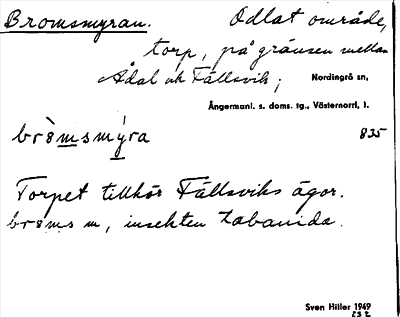 Bromsmyran. Odlat område,
torp, på gränsen mellan
Ådal och Fällsvik; Nordingrö sn,
Ångermanl. s. doms. tg., Västernorrl, l.
bròmsmýra 835
Torpet tillhör Fällsviks ägor.
broms m, insekten tabanida.
Sven Hiller 1949